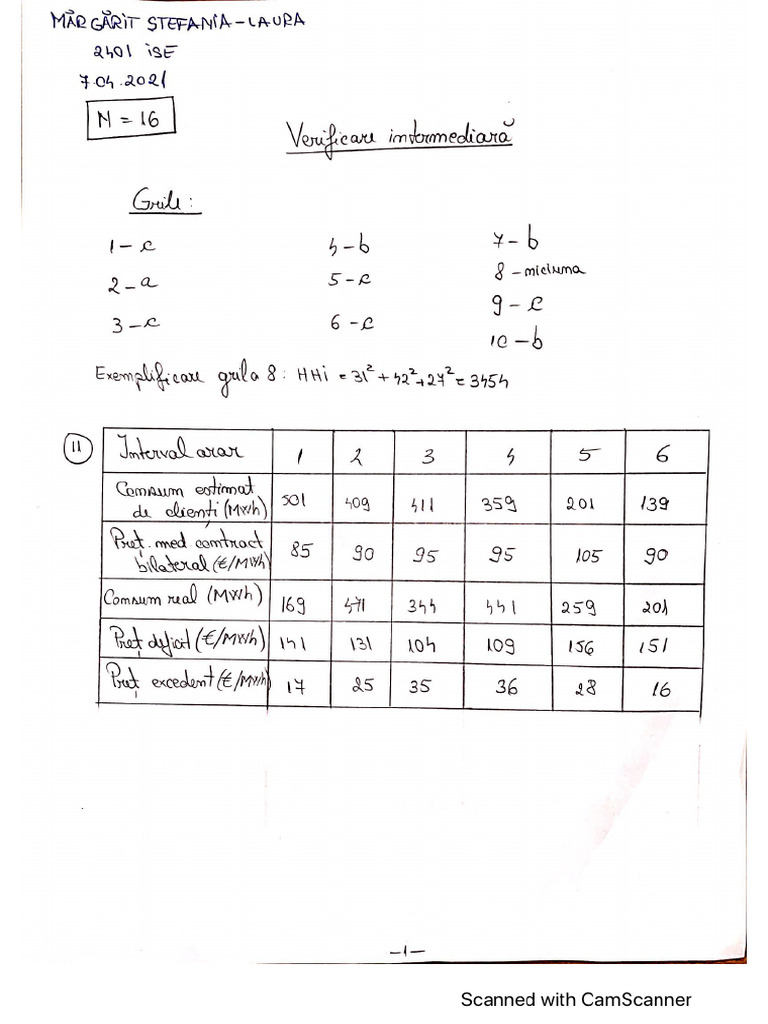 MĂRGĂRIT ȘTEFANIA-LAURA
2401 ISE
7.04.2021
N = 16
Verificare intermediară
Grile:
1 - c 4 - b 7 - b
2 - a 5 - c 8 - niciuna
3 - c 6 - c 9 - c
10 - b
Exemplificare grila 8: HHi = 31² + 42² + 27² = 3454
11 Interval orar 1 2 3 4 5 6
Consum estimat
de clienți (MWh) 401 409 411 359 201 139
Preț. med contract
bilateral (€/MWh) 85 90 95 95 105 90
Consum real (MWh) 169 471 344 441 259 201
Preț deficit (€/MWh) 141 131 104 109 156 151
Preț excedent (€/MWh) 17 25 35 36 28 16
-1-
Scanned with CamScanner